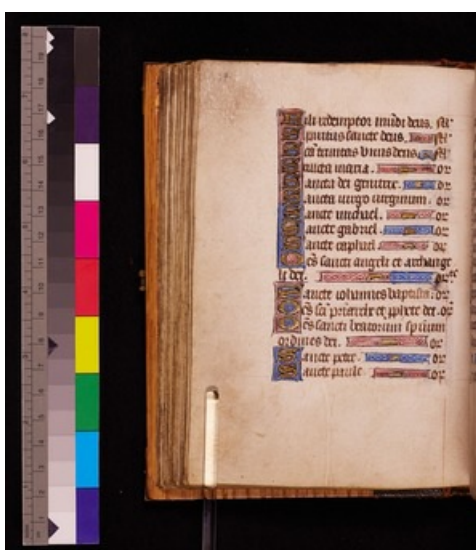 Fili redemptor mūdi deus. mĩ
Spiritus sancte deus. mĩ
Scā trinitas vnus deus. mĩ
Sancta maria. or
Sancta dei genitrix. or
Sancta uirgo uirginum. or
Sancte michael. or
Sancte gabriel. or
Sancte raphael. or
Oēs sancti angeli et archange
li dei. or
Sancte iohannes baptista. or
Oēs sci patriarche et pphete dei. or
Oēs sancti beatorum spūum
ordines dei. or
Sancte petre. or
Sancte paule. or